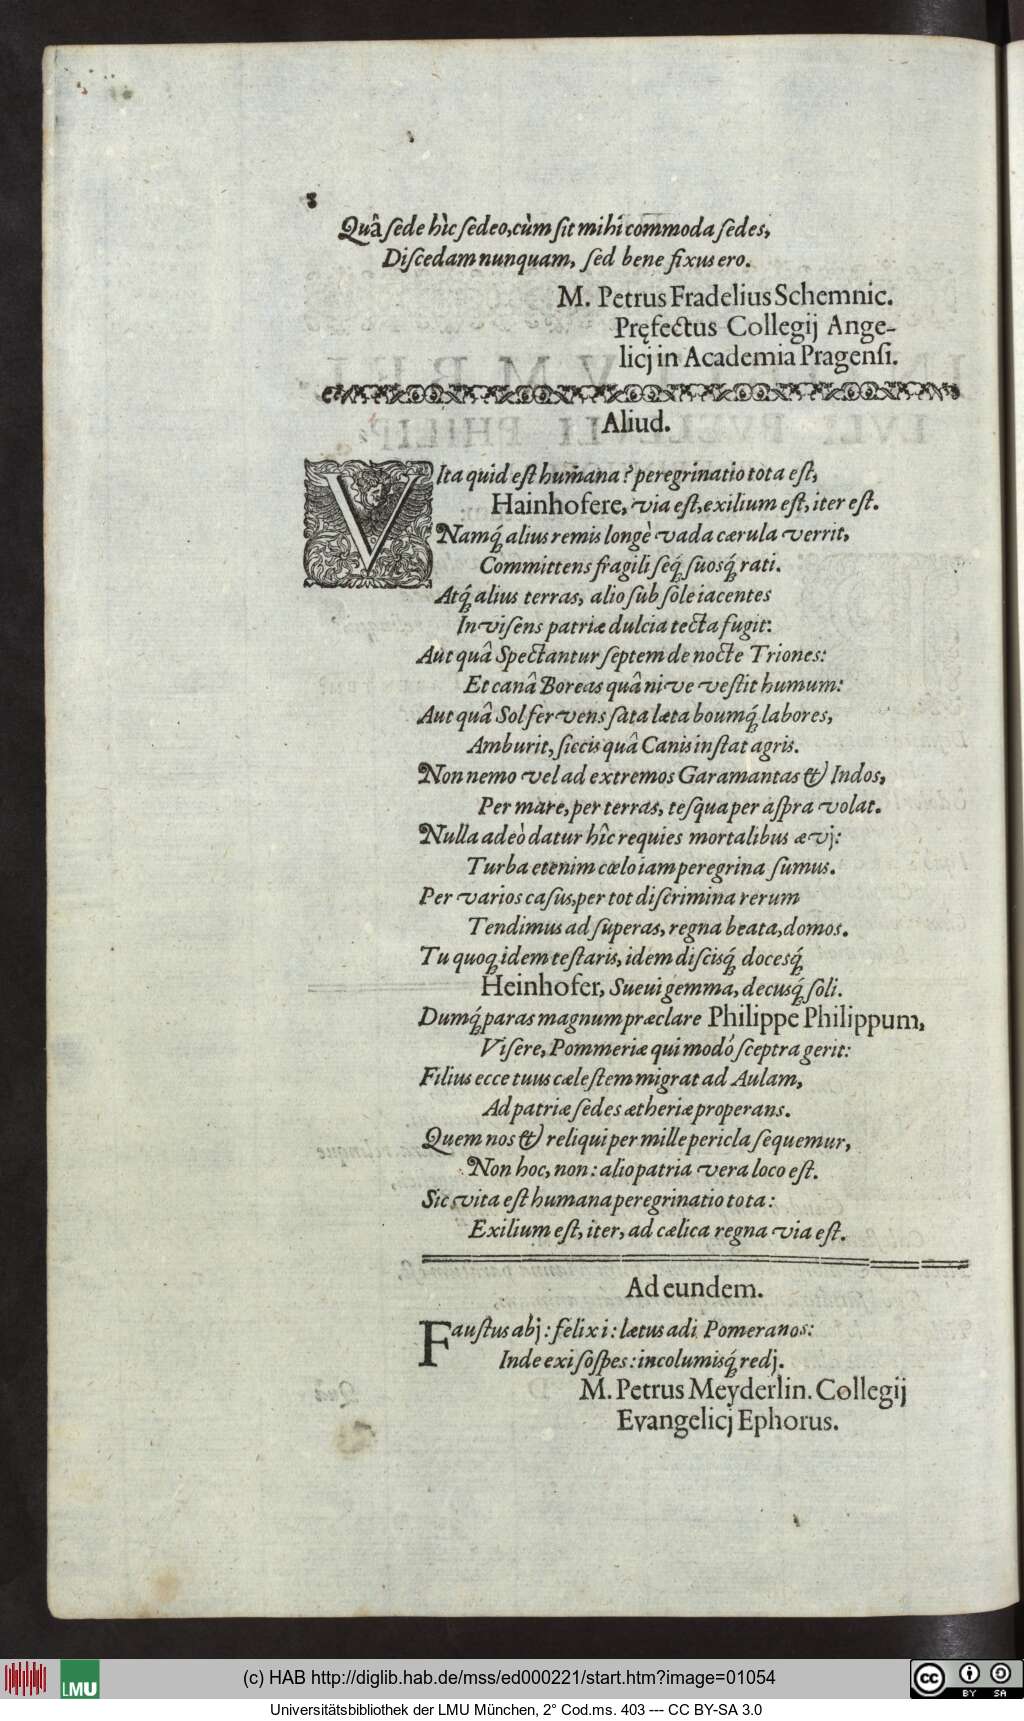 Quâ ſede hìc ſedeo, cùm ſit mihî commoda ſedes,
Diſcedam nunquam, ſed bene fixus ero.
M. Petrus Fradelius Schemnic.
Pręfectus Collegij Ange-
licj in Academia Pragenſi.
Aliud.
VIta quid eſt humana? peregrinatio tota eſt,
Hainhofere, via eſt, exilium eſt, iter eſt.
Namq́ alius remis longè vada cærula verrit,
Committens fragili ſeq́ ſuosq́ rati.
Atq́ alius terras, alio ſub ſole iacentes
Inviſens patriæ dulcia tecta fugit:
Aut quâ Spectantur ſeptem de nocte Triones:
Et canâ Boreas quâ nive veſtit humum:
Aut quâ Sol fervens ſata læta boumq́ labores,
Amburit, ſiccis quâ Canis inſtat agris.
Non nemo vel ad extremos Garamantas & Indos,
Per mare, per terras, teſqua per aſpra volat.
Nulla adeò datur hîc requies mortalibus ævj:
Turba etenim cœlo iam peregrina ſumus.
Per varios caſus, per tot diſcrimina rerum
Tendimus ad ſuperas, regna beata, domos.
Tu quoq́ idem teſtaris, idem diſcisq́ docesq́
Heinhofer, Suevi gemma, decusq́ ſoli.
Dumq́ paras magnum præclare Philippe Philippum,
Viſere, Pommeriæ qui modó ſceptra gerit:
Filius ecce tuus cæleſtem migrat ad Aulam,
Ad patriæ ſedes ætheriæ properans.
Quem nos & reliqui per mille pericla ſequemur,
Non hoc, non: alio patria vera loco eſt.
Sic vita eſt humana peregrinatio tota:
Exilium eſt, iter, ad cælica regna via eſt.
Ad eundem.
Fauſtus abj: felix i: lætus adi Pomeranos:
Inde exi ſoſpes: incolumisq́ redj.
M. Petrus Meyderlin. Collegij
Evangelicj Ephorus.
LMU
(c) HAB http://diglib.hab.de/mss/ed000221/start.htm?image=01054
cc BY SA
Universitätsbibliothek der LMU München, 2° Cod.ms. 403 --- CC BY-SA 3.0